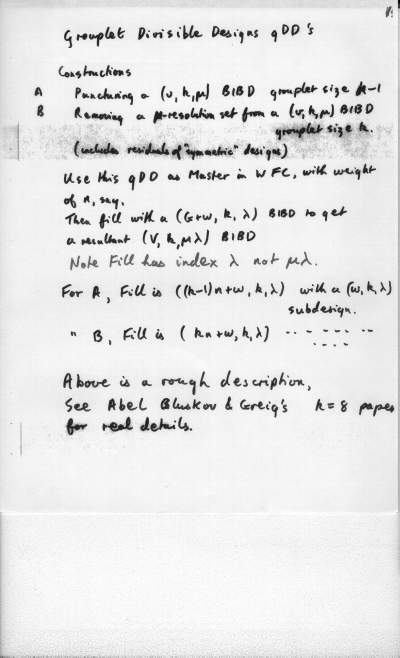 Grouplet Divisible Designs gDD's
Constructions
A Puncturing a (v,k,μ) BIBD grouplet size k-1
B Removing a μ-resolution set from a (v,k,μ) BIBD
grouplet size k.
(includes residuals of "symmetric" designs)
Use this gDD as Master in WFC, with weight
of n, say.
Then fill with a (G+w, k, λ) BIBD to get
a resultant (V, k, μλ) BIBD
Note Fill has index λ not μλ.
For A, Fill is ((k-1)n+w, k, λ) with a (w, k, λ)
subdesign.
" B, Fill is (kn+w, k, λ) -- -- -- -- --
-- -- --
Above is a rough description,
See Abel Bluskov & Greig's k=8 paper
for real details.